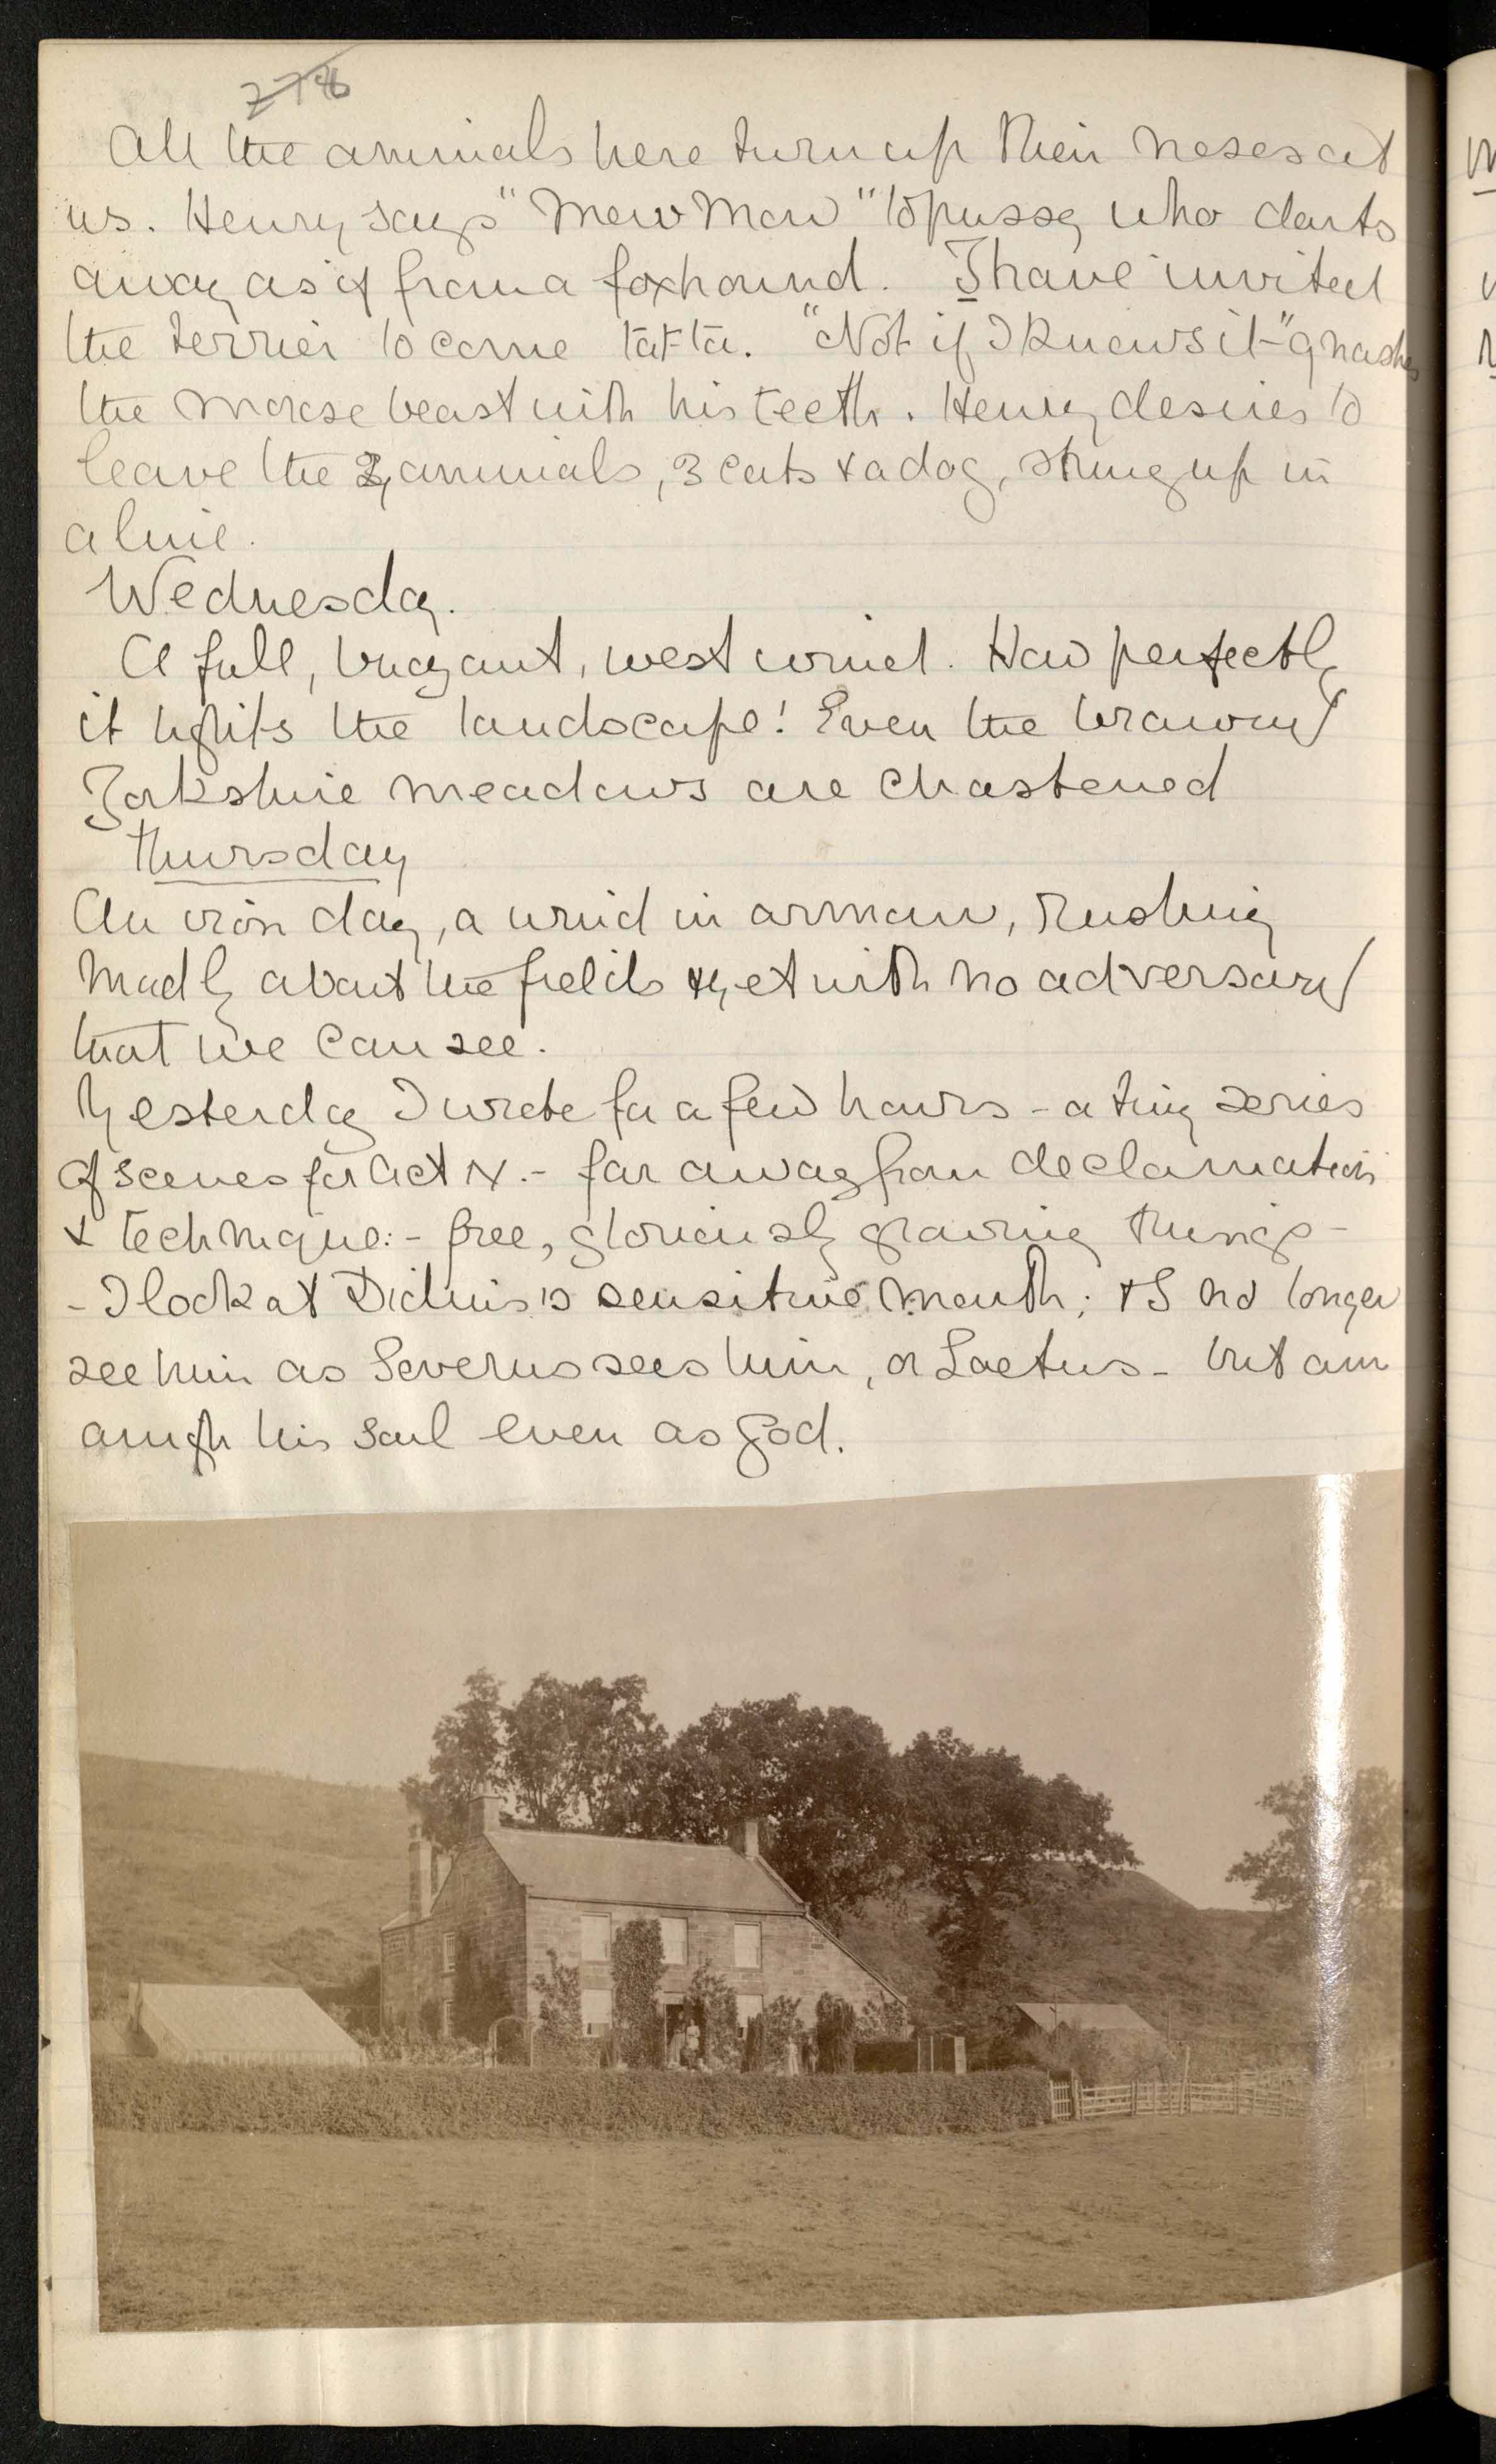 278
All the animals here turn up their noses at
us. Henry says "Mew Mew" to pussy who darts
away as if from a foxhound. I have invited
the terrier to come tat-ta. "Not if I knows it-" gnashes
the morose beast with his teeth. Henry desires to
leave the animals, 3 cats & a dog, strung up in
a line.
Wednesday.
A full, buoyant, west wind. How perfectly
it lights the landscape! Even the brawny
Yorkshire meadows are chastened
Thursday
An iron day, a wind in armour, rushing
madly about the fields & yet with no adversary
that we can see.
Yesterday I wrote for a few hours - a tiny series
of scenes for Act IV. - far away from declamation
& technique: - free, gloriously growing things -
- I look at Didius's sensitive mouth; & I no longer
see him as Severus sees him, or Laetus - but am
his soul even as God.